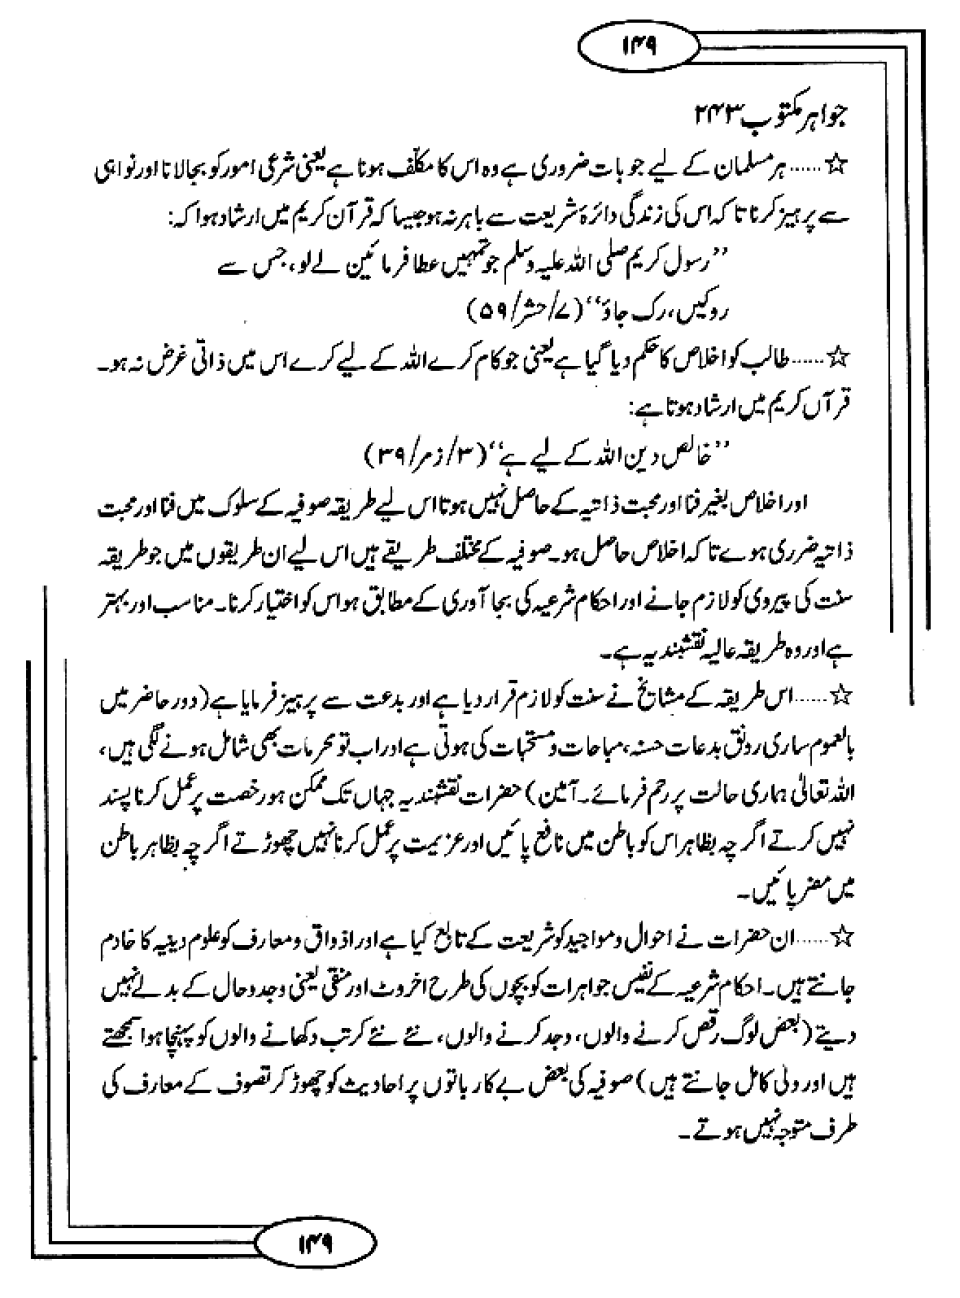 ۱۴۹
جواہر مکتوب ۲۴۳
☆......ہر مسلمان کے لیے جو بات ضروری ہے وہ اس کا مکلّف ہونا ہے یعنی شرعی امور کو بجالانا اور نواہی
سے پرہیز کرنا تا کہ اس کی زندگی دائرۂ شریعت سے باہر نہ ہو جیسا کہ قرآن کریم میں ارشاد ہوا کہ:
’’رسول کریم صلی اللہ علیہ وسلم جو تمہیں عطا فرمائیں لے لو، جس سے
روکیں، رک جاؤ‘‘ (۷/حشر/۵۹)
☆......طالب کو اخلاص کا حکم دیا گیا ہے یعنی جو کام کرے اللہ کے لیے کرے اس میں ذاتی غرض نہ ہو۔
قرآں کریم میں ارشاد ہوتا ہے:
’’خالص دین اللہ کے لیے ہے‘‘ (۳/زمر/۳۹)
اور اخلاص بغیر فنا اور محبت ذاتیہ کے حاصل نہیں ہوتا اس لیے طریقہ صوفیہ کے سلوک میں فنا اور محبت
ذاتیہ ضرری ہوے تا کہ اخلاص حاصل ہو۔ صوفیہ کے مختلف طریقے ہیں اس لیے ان طریقوں میں جو طریقہ
سنت کی پیروی کو لازم جانے اور احکام شرعیہ کی بجا آوری کے مطابق ہو اس کو اختیار کرنا۔ مناسب اور بہتر
ہے اور وہ طریقہ عالیہ نقشبندیہ ہے۔
☆......اس طریقہ کے مشائخ نے سنت کو لازم قرار دیا ہے اور بدعت سے پرہیز فرمایا ہے (دور حاضر میں
بالعموم ساری رونق بدعات حسنہ، مباحات و مستحبات کی ہوتی ہے اور اب تو محرمات بھی شامل ہونے لگی ہیں،
اللہ تعالیٰ ہماری حالت پر رحم فرمائے۔ آمین) حضرات نقشبندیہ جہاں تک ممکن ہو رخصت پر عمل کرنا پسند
نہیں کرتے اگرچہ بظاہر اس کو باطن میں نافع پائیں اور عزیمت پر عمل کرنا نہیں چھوڑتے اگرچہ بظاہر باطن
میں مضر پائیں۔
☆......ان حضرات نے احوال و مواجید کو شریعت کے تابع کیا ہے اور اذواق و معارف کو علوم دینیہ کا خادم
جانتے ہیں۔ احکام شرعیہ کے نفیس جواہرات کو بچوں کی طرح اخروٹ اور منقی یعنی وجد و حال کے بدلے نہیں
دیتے (بعض لوگ رقص کرنے والوں، وجد کرنے والوں، نئے نئے کرتب دکھانے والوں کو پہنچا ہوا سمجھتے
ہیں اور ولی کامل جانتے ہیں) صوفیہ کی بعض بے کار باتوں پر احادیث کو چھوڑ کر تصوف کے معارف کی
طرف متوجہ نہیں ہوتے۔
۱۴۹